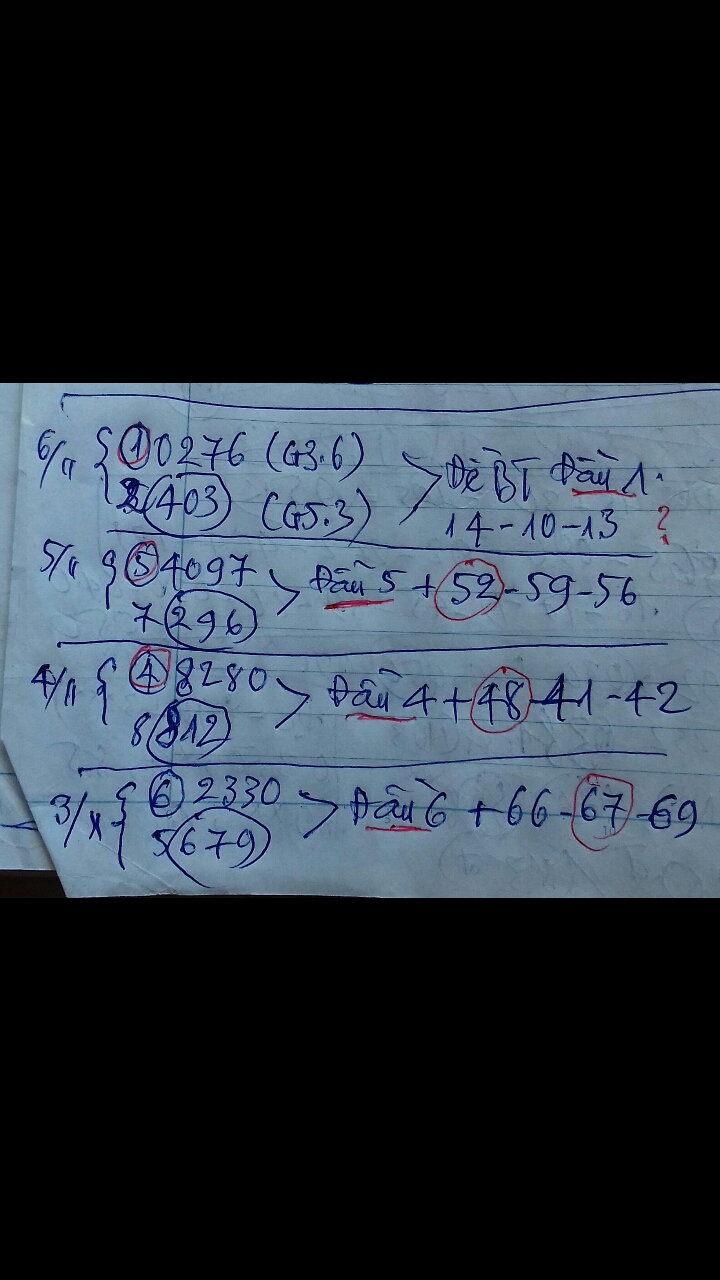 6/11 { 10276 (G3.6)
2403 (G5.3) > Đề BT Đầu 1.
14-10-13 ?
5/11 { 54097
7296 > Đầu 5 + 52-59-56
4/11 { 48280
8812 > Đầu 4 + 48-41-42
3/ { 62330
5679 > Đầu 6 + 66-67-69